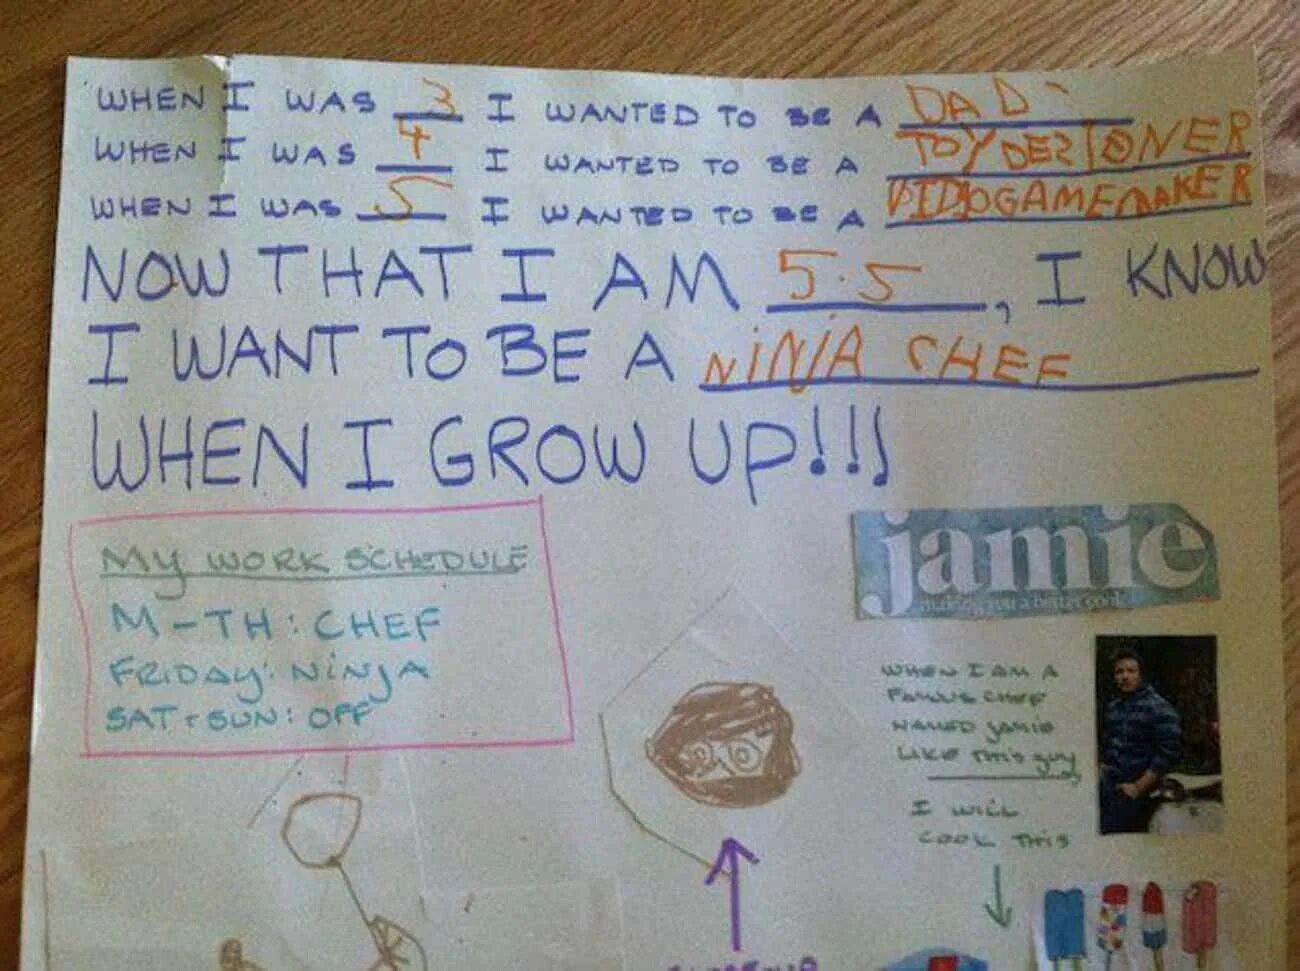 WHEN I WAS 3 I WANTED TO BE A DAD
WHEN I WAS 4 I WANTED TO BE A TOY DEZIONER
WHEN I WAS 5 I WANTED TO BE A VIDIOGAMEMAKER
NOW THAT I AM 5.5, I KNOW
I WANT TO BE A NINJA CHEF
WHEN I GROW UP!!!
MY WORK SCHEDULE
M-TH: CHEF
FRIDAY: NINJA
SAT + SUN: OFF
jamie
making you a better cook
WHEN I AM A
FAMOUS CHEF
NAMED JAMIE
LIKE THIS GUY
I WILL
COOK THIS